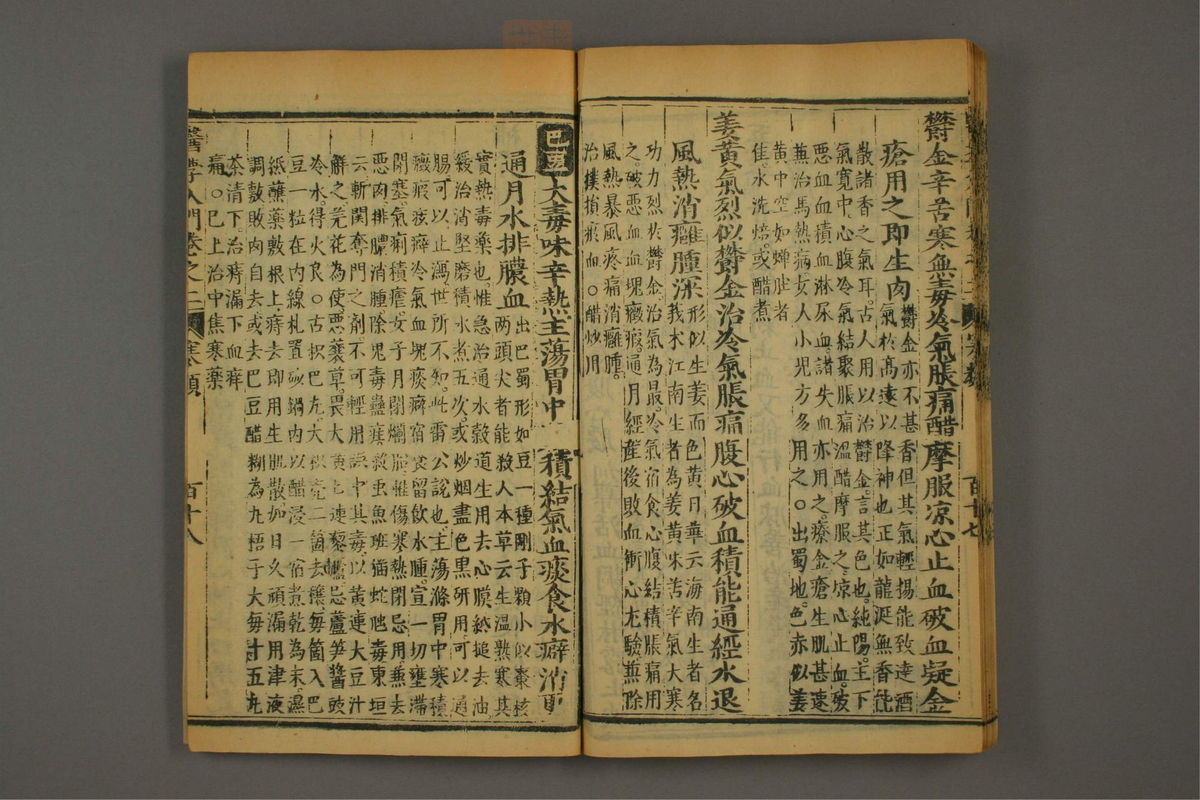 欝金辛苦寒無毒冷氣脹痛醋摩服凉心止血破血凝金
瘡用之即生肉
欝金亦不甚香但其氣輕揚能致達酒
氣於高遠以降神也正如龍涎無香能
散諸香之氣耳古人用以治欝金言其色也純陽主下
氣寬中心腹冷氣結聚脹痛溫醋摩服之凉心止血破
惡血血積血淋尿血諸失血亦用之療金瘡生肌甚速
兼治馬熱病女人小児方多用之○出蜀地色赤似姜
黄中空如蟬肚者
佳水洗焙或醋煮
姜黄氣烈似欝金治冷氣脹痛腹心破血積能通經水退
風熱消癰腫深
形似生姜而色黄日華云海南生者名
我术江南生者為姜黄味苦辛氣大寒
功力烈於欝金治氣為最冷氣宿食心腹結積脹痛用
之破惡血血塊癥瘕通月經産後敗血衝心尤驗兼除
風熱暴風疼痛消癰腫
治撲損瘀血○醋炒用
巴豆大毒味辛熱主蕩胃中積結氣血痰食水癖消
通月水排膿血
出巴蜀形如豆一種剛子顆小似棗核
两頭尖者能殺人本草云生温熟寒其
實熱毒藥也惟急治通水穀道生用去心膜紙搥去油
緩治消堅磨積水煮五次或炒烟盡色黑研用可以通
腸可以止瀉世所不知此雷公說也主蕩滌胃中寒積
癥瘕痃癖冷氣血塊痰癖宿食留飲水腫宣一切壅滯
閉塞氣痢積瘧女子月閉爛胎雜傷寒熱閉忌用兼去
惡肉排膿消腫除鬼毒蠱疰殺虫魚班猫蛇虺毒東垣
云斬関奪門之劑不可輕用誤中其毒以黄連大豆汁
解之芫花為使惡蘘草畏大黄黄連藜蘆忌蘆笋醬豉
冷水得火良○古抧巴丸大枳壳二箇去穰每箇入巴
豆一粒在内線札置砂鍋内以醋浸一宿煮乾為末濕
紙蘸藥敷根上痔去即用生肌散如日久頑漏用津液
調敷敗肉自去或去巴豆醋糊為丸梧子大每甘五丸
茶清下治痔漏下血痒
痛○巳上治中焦寒藥
醫學入門卷之二 寒類 百十八
百十七